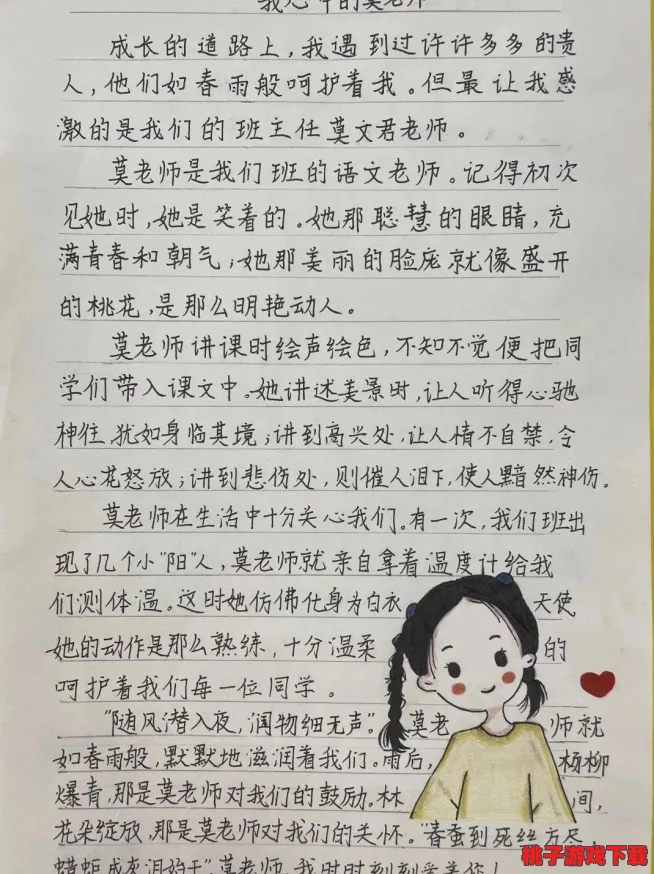 我心中的莫老师
成长的道路上，我遇到过许许多多的贵
人，他们如春雨般呵护着我。但最让我感
激的是我们的班主任莫文君老师。
莫老师是我们班的语文老师。记得初次
见她时，她是笑着的。她那聪慧的眼睛，充
满青春和朝气；她那美丽的脸庞就像盛开
的桃花，是那么明艳动人。
莫老师讲课时绘声绘色，不知不觉便把同
学们带入课文中。她讲述美景时，让人听得心驰
神往，犹如身临其境；讲到高兴处，让人情不自禁，令
人心花怒放；讲到悲伤处，则催人泪下，使人黯然神伤。
莫老师在生活中十分关心我们。有一次，我们班出
现了几个小“阳”人，莫老师就亲自拿着温度计给我
们测体温。这时她仿佛化身为白衣天使
她的动作是那么熟练，十分温柔的
呵护着我们每一位同学。
“随风潜入夜，润物细无声。”莫老师就
如春雨般，默默地滋润着我们。雨后，杨柳
爆青，那是莫老师对我们的鼓励。林间，
花朵绽放，那是莫老师对我们的关怀。“春蚕到死丝方尽，
蜡炬成灰泪始干”莫老师，我时时刻刻爱着你！
桃子游戏下载